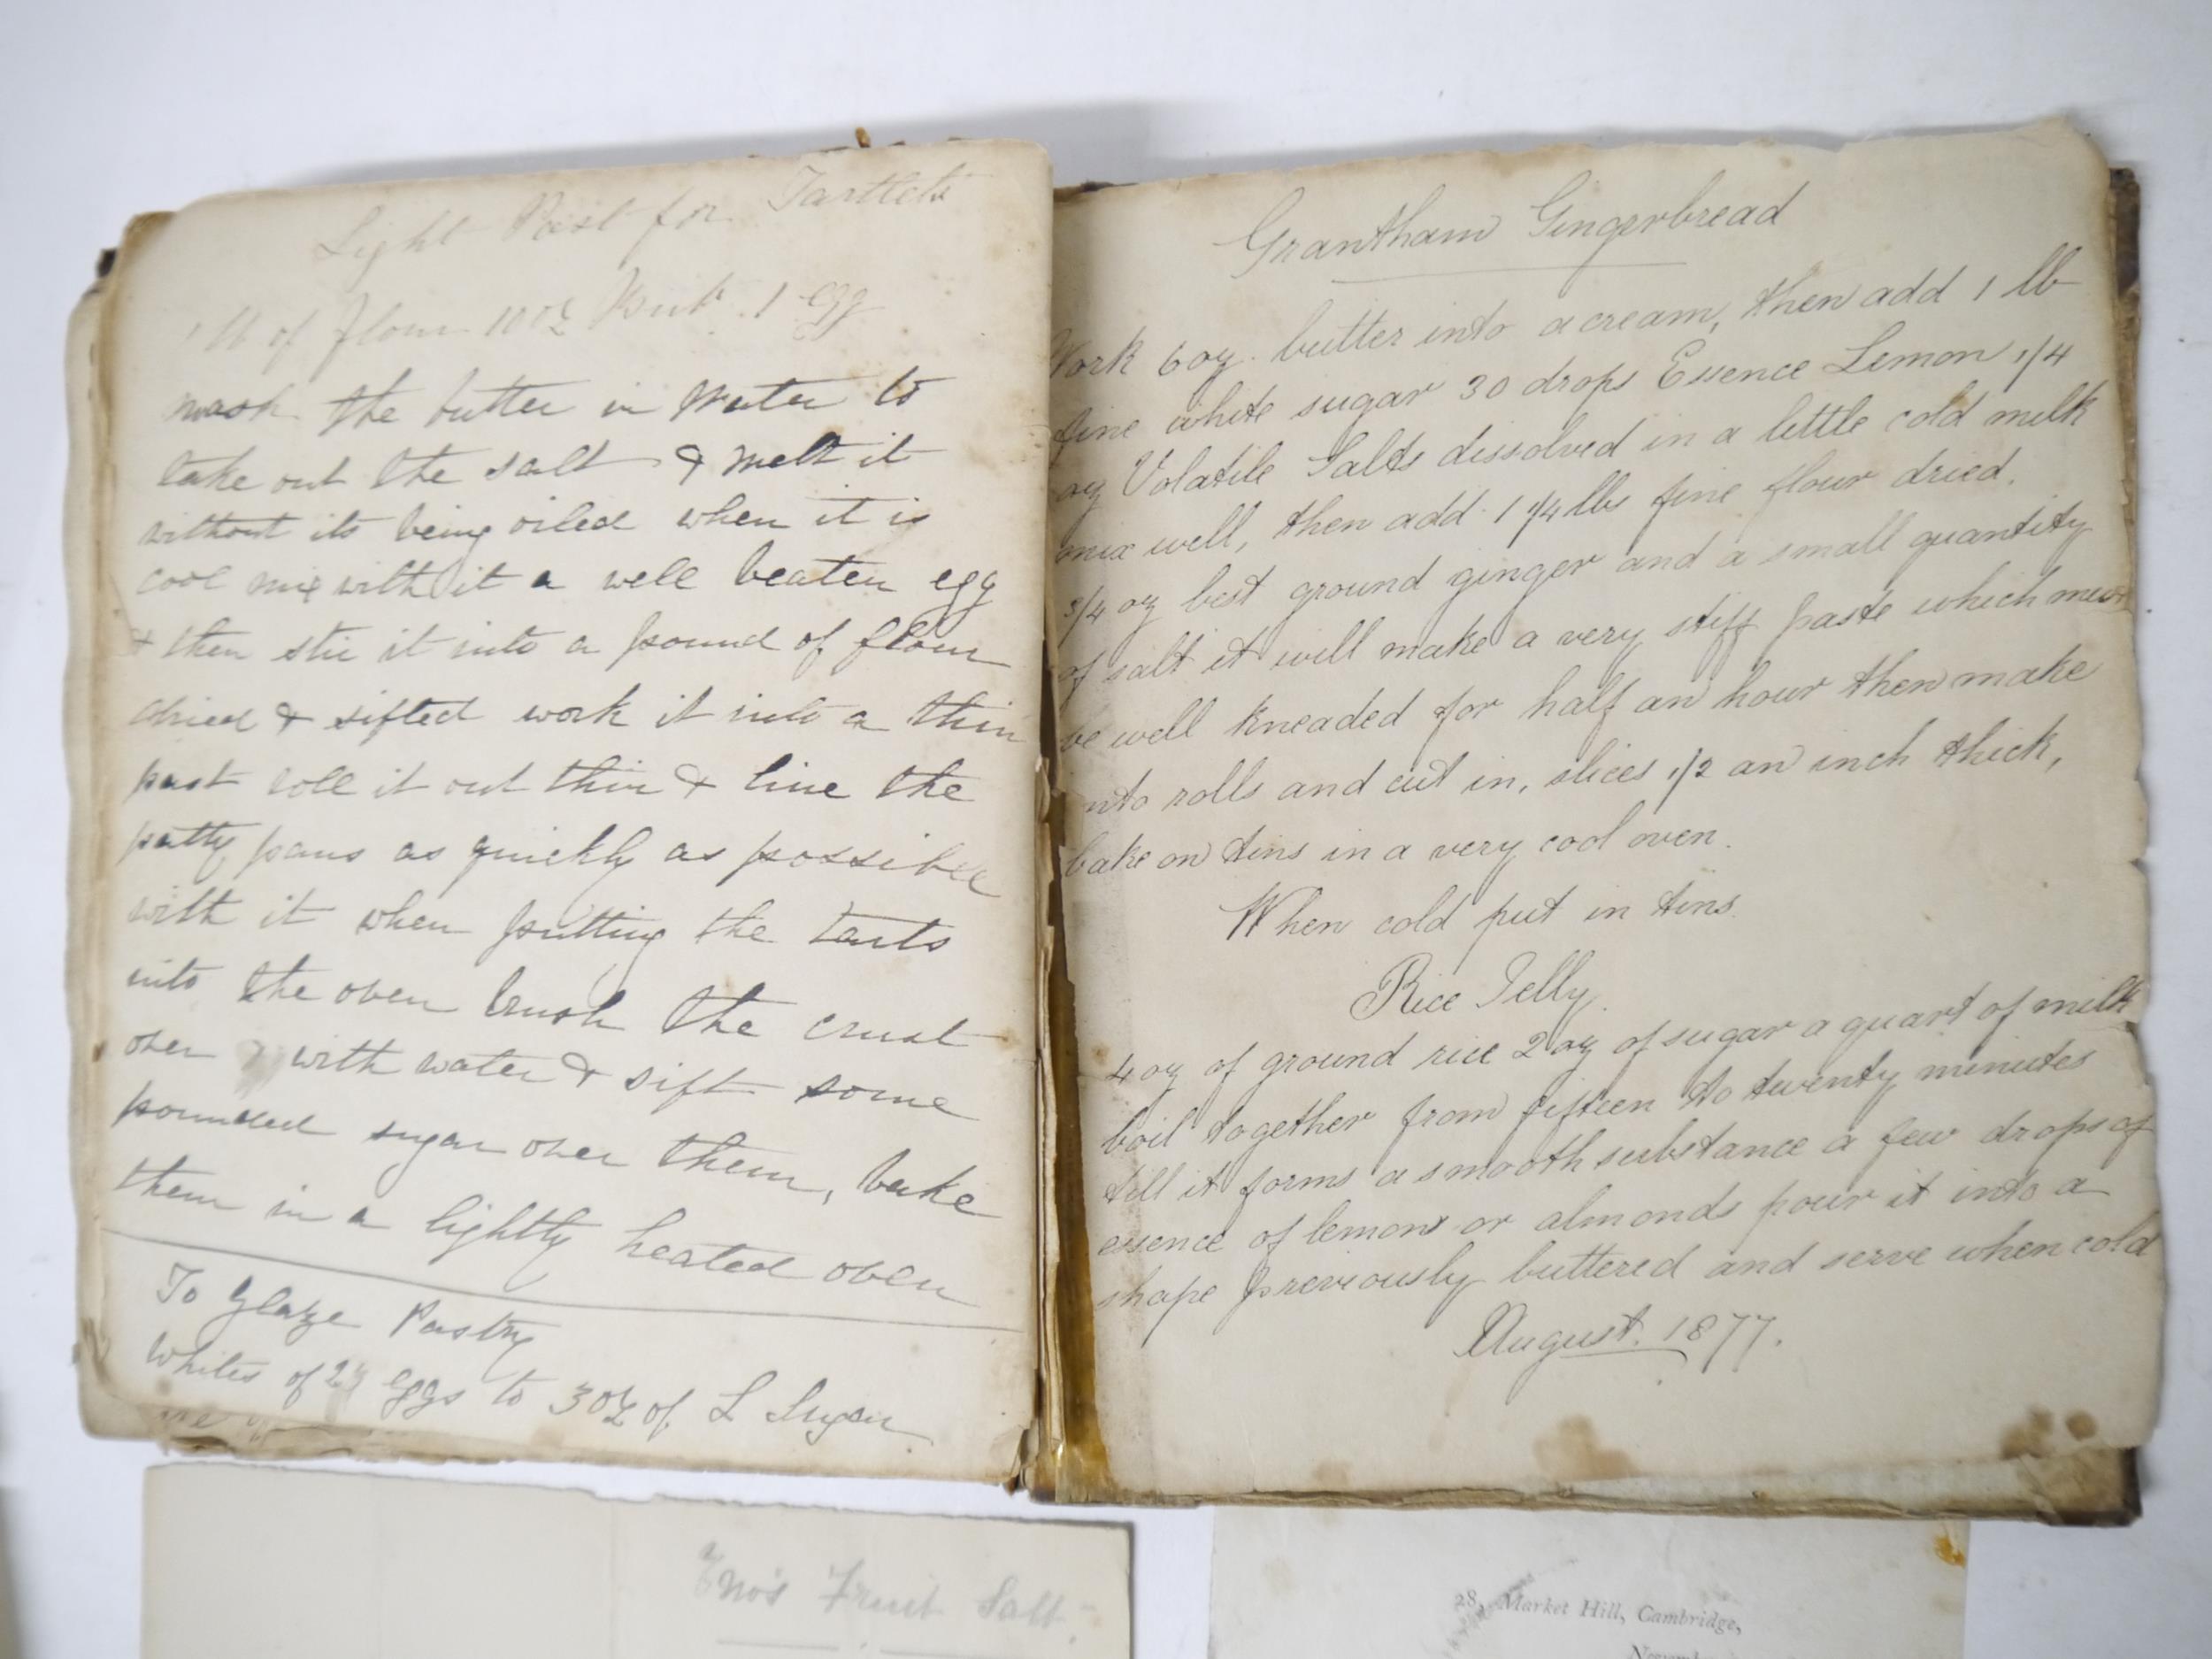 Light Past for Tartlets
1 lb of flour 10 oz But. 1 egg
wash the butter in water to
take out the salt & melt it
without its being oiled when it is
cool mix with it a well beaten egg
& then stir it into a pound of flour
dried & sifted work it into a thin
past roll it out thin & line the
patty pans as quickly as possible
with it when putting the tarts
into the oven brush the crust
over with water & sift some
pounded sugar over them, bake
them in a lightly heated oven
To glaze Pastry
Whites of 2 eggs to 3 oz of L Sugar
Grantham Gingerbread
Work 6 oz. butter into a cream, then add 1 lb
fine white sugar 30 drops Essence Lemon 1/4
oz Volatile Salts dissolved in a little cold milk
mix well, then add 1 1/4 lbs fine flour dried.
3/4 oz best ground ginger and a small quantity
of salt it will make a very stiff paste which must
be well kneaded for half an hour then make
into rolls and cut in, slices 1/2 an inch thick,
bake on tins in a very cool oven.
When cold put in tins.
Rice Jelly.
4 oz of ground rice 2 oz of sugar a quart of milk
boil together from fifteen to twenty minutes
till it forms a smooth substance a few drops of
essence of lemon or almonds pour it into a
shape previously buttered and serve when cold
August. 1877.
Eno's Fruit Salt.
28, Market Hill, Cambridge,